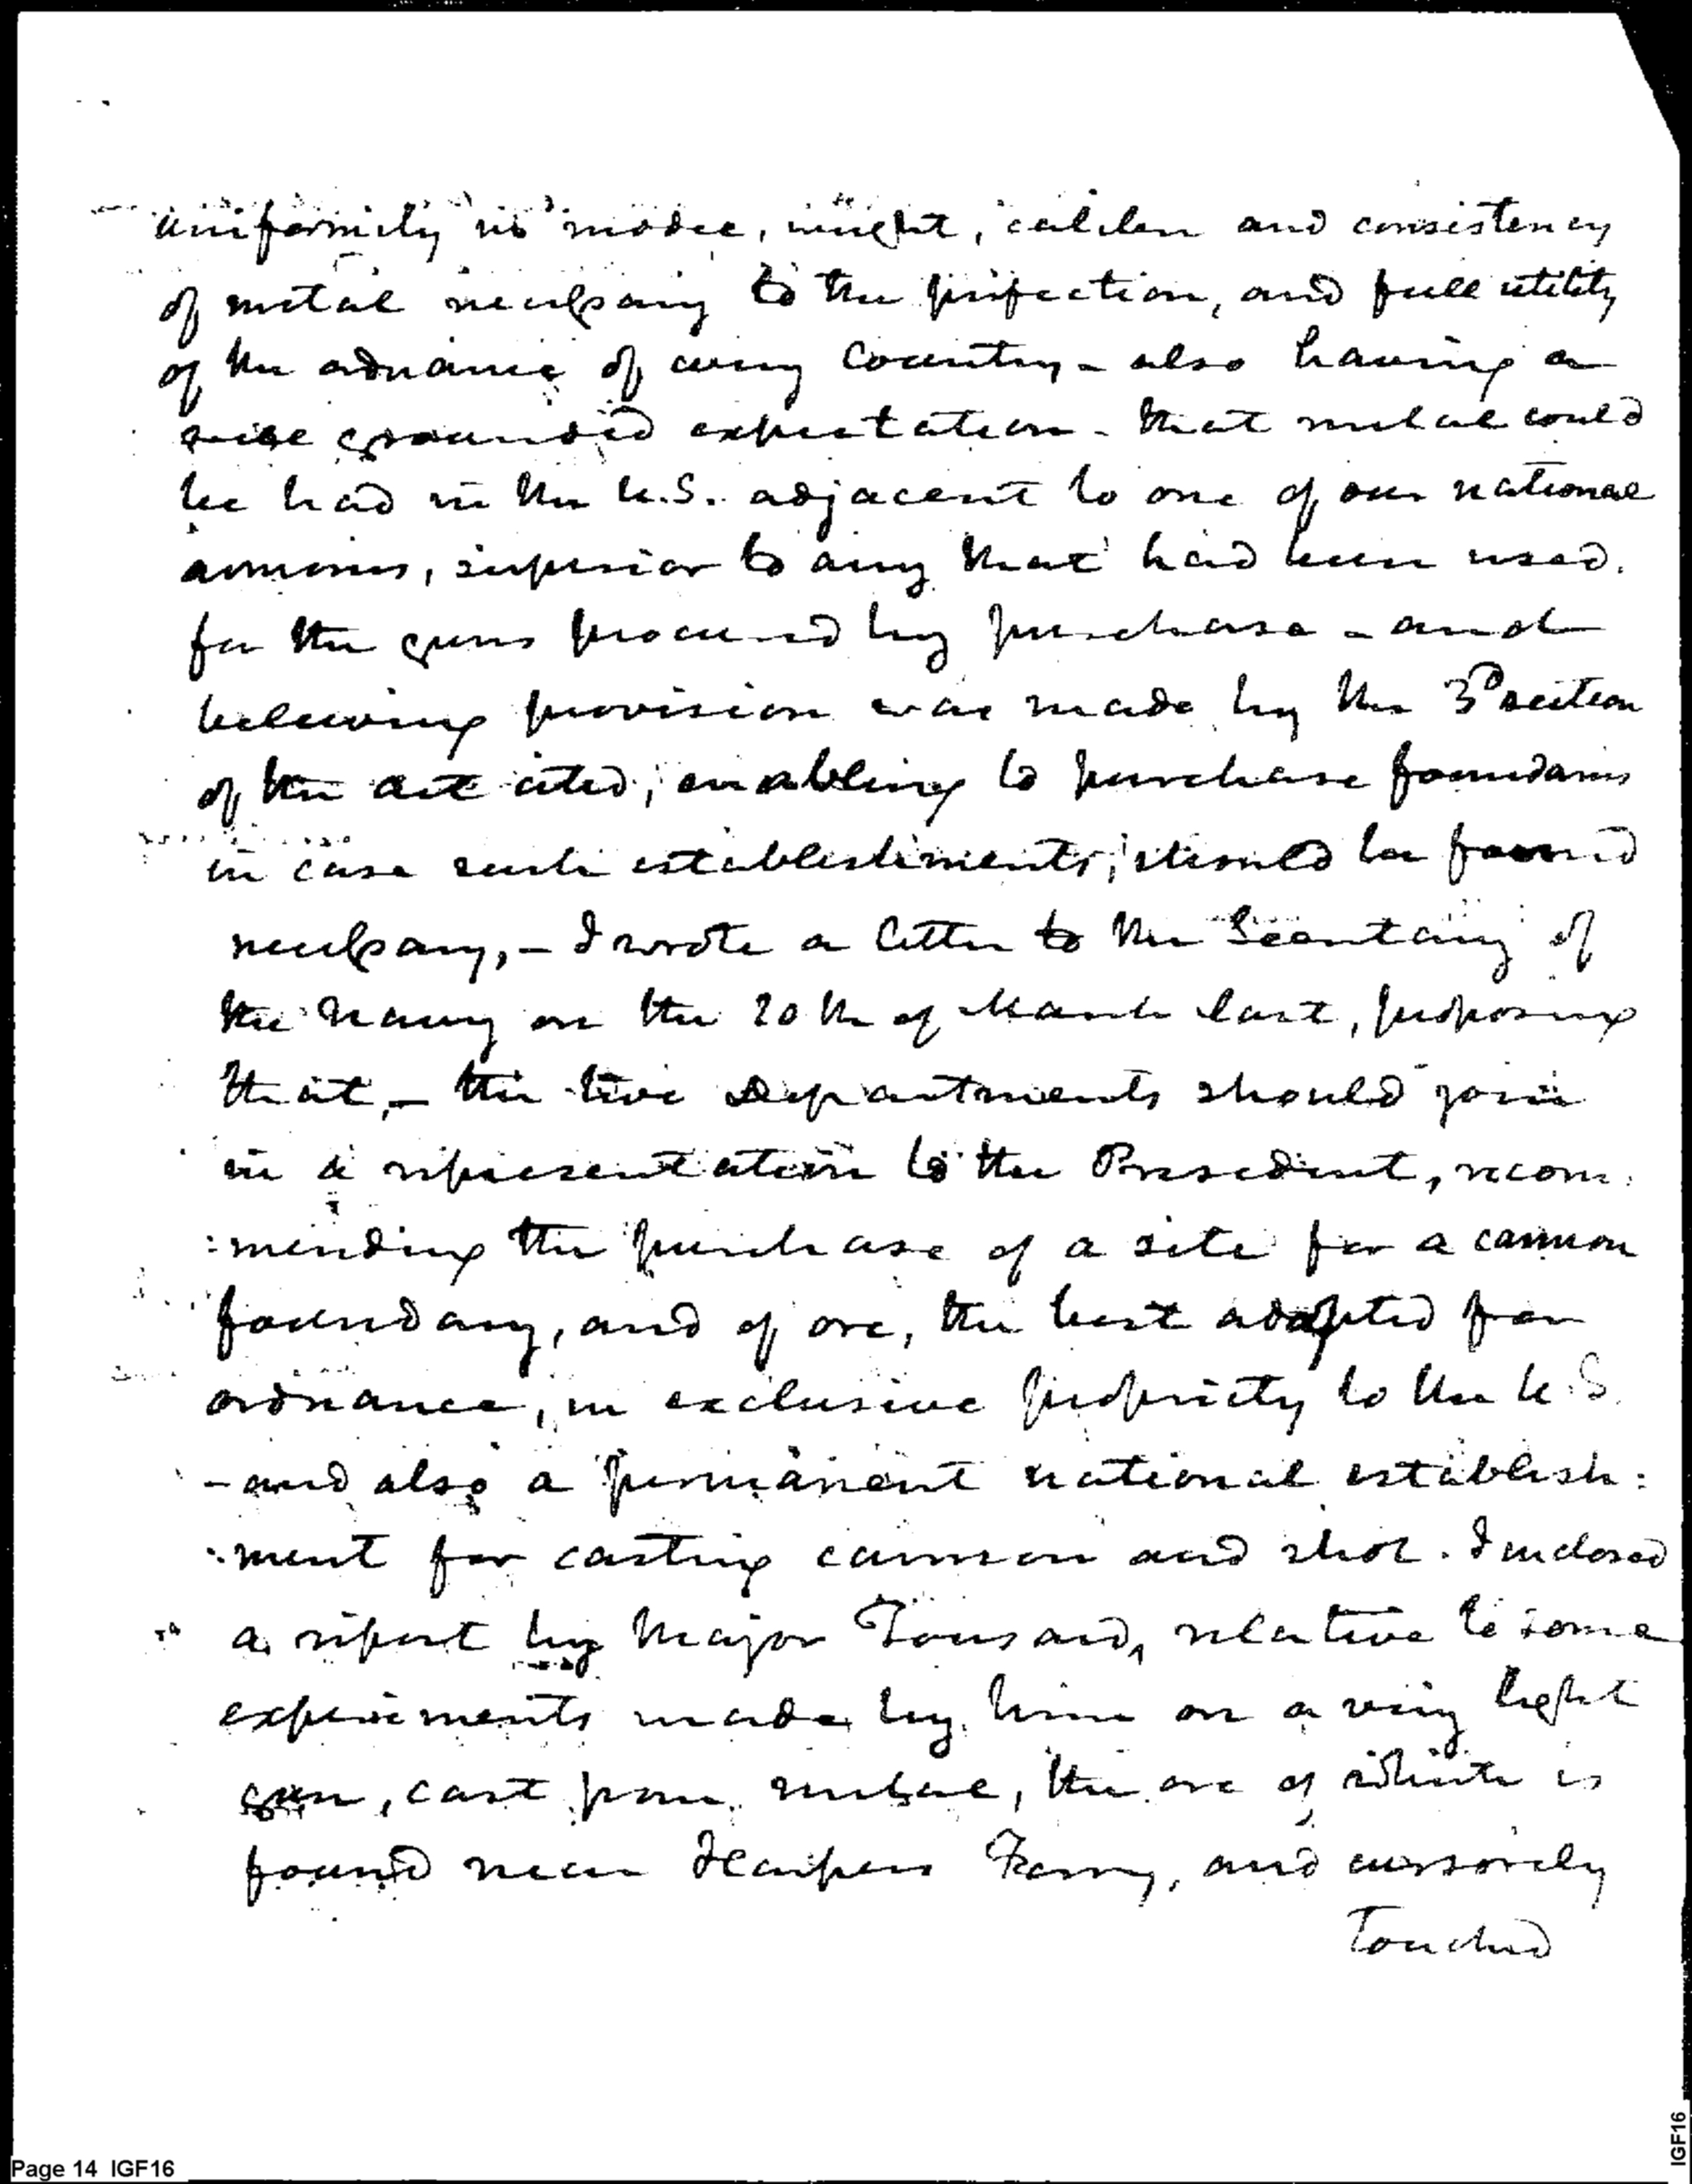 uniformity in model, weight, caliber and consistency
of metal necessary to the perfection, and full utility
of the ordnance of every Country - also having a
well grounded expectation - that metal could
be had in the U.S. adjacent to one of our national
armories, superior to any that had been used.
for the guns procured by purchase - and
believing provision was made by the 3d section
of the act cited, enabling to purchase foundaries
in case such establishments, should be found
necessary, - I wrote a letter to the Secretary of
the Navy on the 20th of March last, proposing
that, - the two Departments should join
in a representation to the President, recom:
:mending the purchase of a site for a cannon
foundary, and of ore, the best adapted for
ordnance, in exclusive propriety to the U.S.
- and also a permanent national establish:
:ment for casting cannon and shot. I inclosed
a report by Major Tousard, relative to some
experiments made by him on a very light
gun, cast from metal, the ore of which is
found near Harpers Ferry, and cursorily
Touched
Page 14 IGF16
IGF16